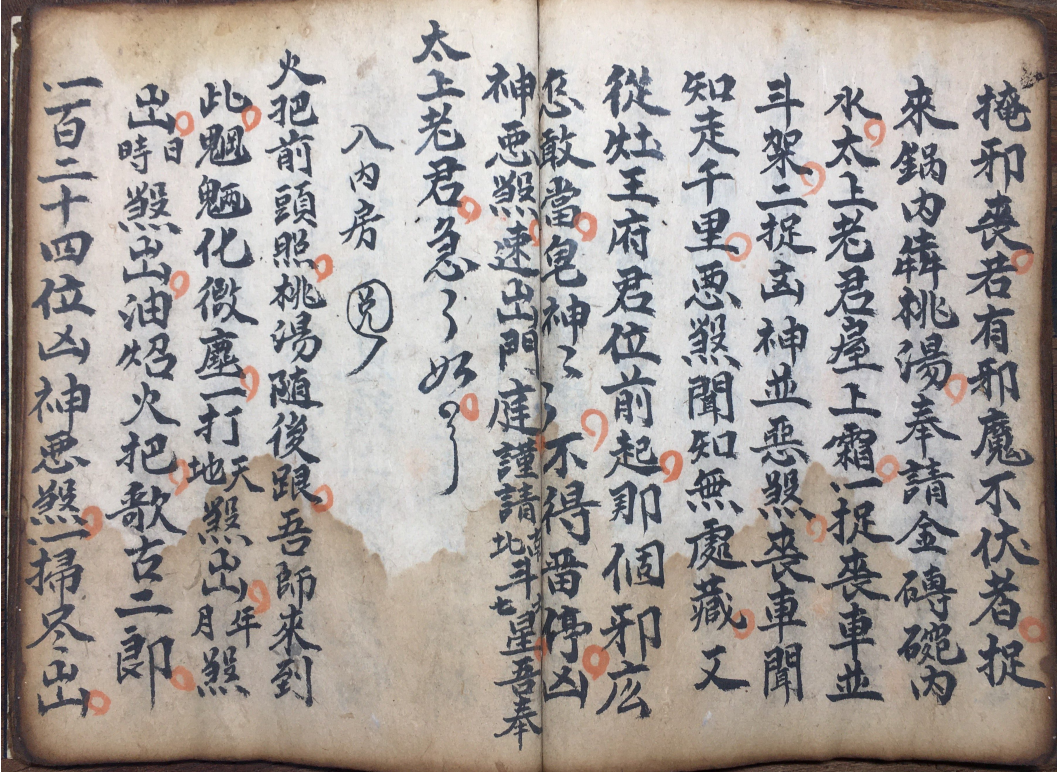 掩邪喪君有邪魔不伏者捉
來鍋内犇桃湯奉請金磚碗内
水太上老君室上霜一捉喪車並
斗架二捉凶神並惡煞喪車聞
知走千里惡煞聞知無處藏又
從灶王府君位前起那個邪庅
怎敢當鬼神〻不得畱停凶
神惡煞速出門庭謹請南北斗七星吾奉
太上老君急〻如
入内房
火把前頭照桃湯随後跟吾師來到
此魍魎化微塵一打天地煞出年月煞
出日時煞出油炤火把歌古二郎
一百二十四位凶神惡煞一掃尽出